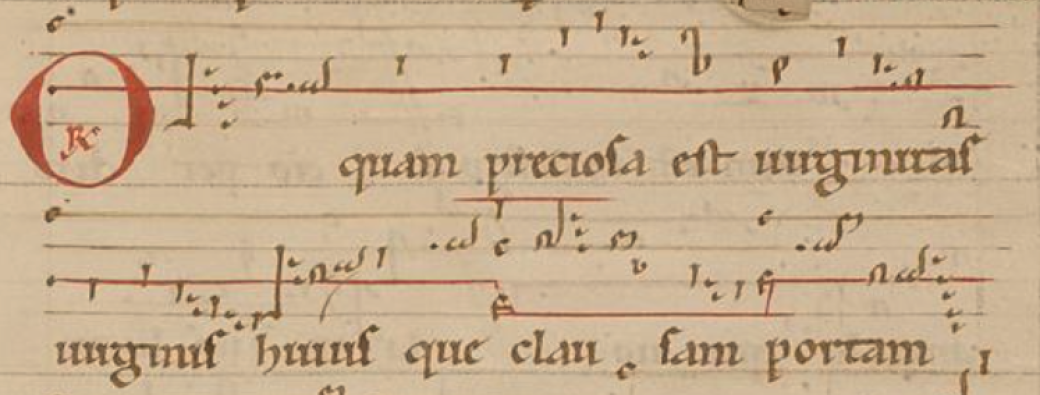 O quam preciosa est uirginitas
uirginis huius que clau sam portam